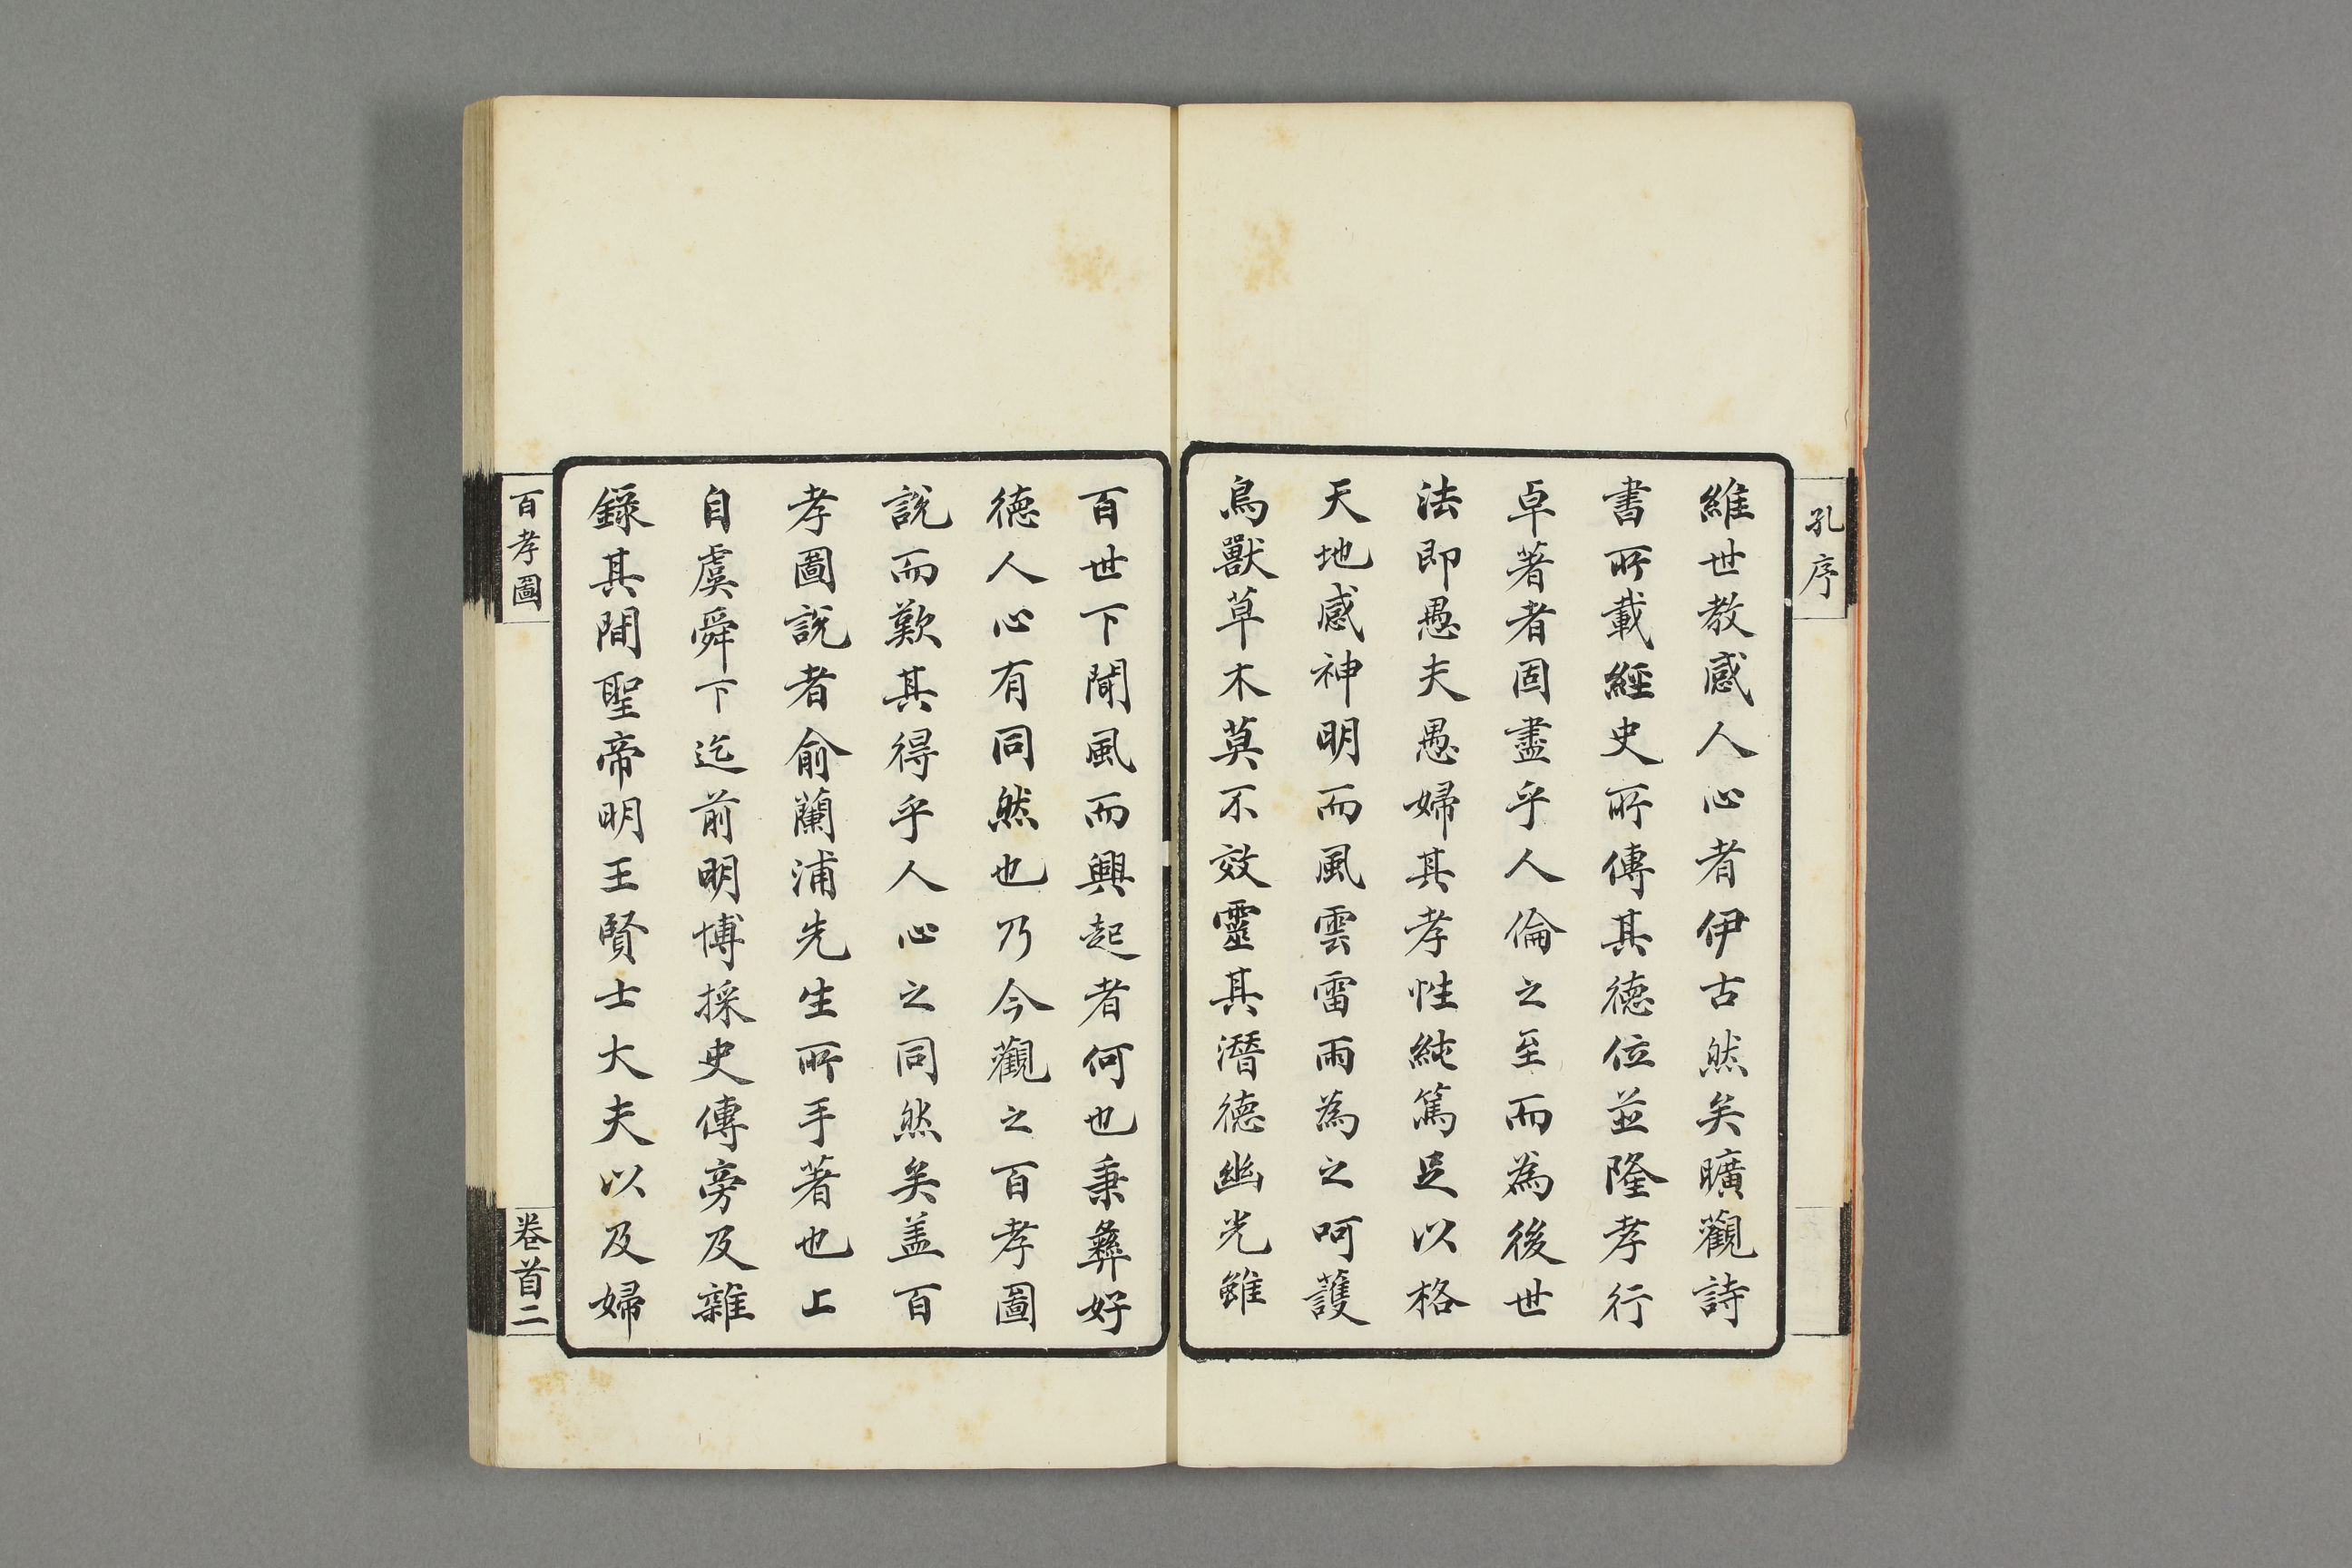 孔序
維世教感人心者伊古然矣曠觀詩
書所載經史所傳其德位並隆孝行
卓著者固盡乎人倫之至而為後世
法即愚夫愚婦其孝性純篤足以格
天地感神明而風雲雷雨為之呵護
鳥獸草木莫不效靈其潛德幽光雖
百世下聞風而興起者何也秉彝好
德人心有同然也乃今觀之百孝圖
說而歎其得乎人心之同然矣盖百
孝圖說者俞蘭浦先生所手著也上
自虞舜下迄前明博採史傳旁及雜
錄其間聖帝明王賢士大夫以及婦
百孝圖
卷首二